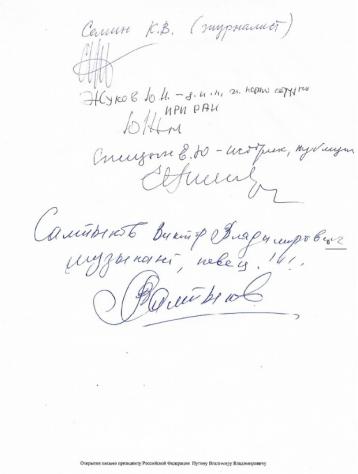 Семин К.В. (журналист)
Жуков Ю.Н. – д.и.н. гл. научн. сотрудн.
ИРИ РАН
Спицын Е.Ю – историк, публиц
Салтыков Виктор Владимирович
музыкант, певец!!!!
Салтыков
Открытое письмо президенту Российской Федерации Путину Владимиру Владимировичу